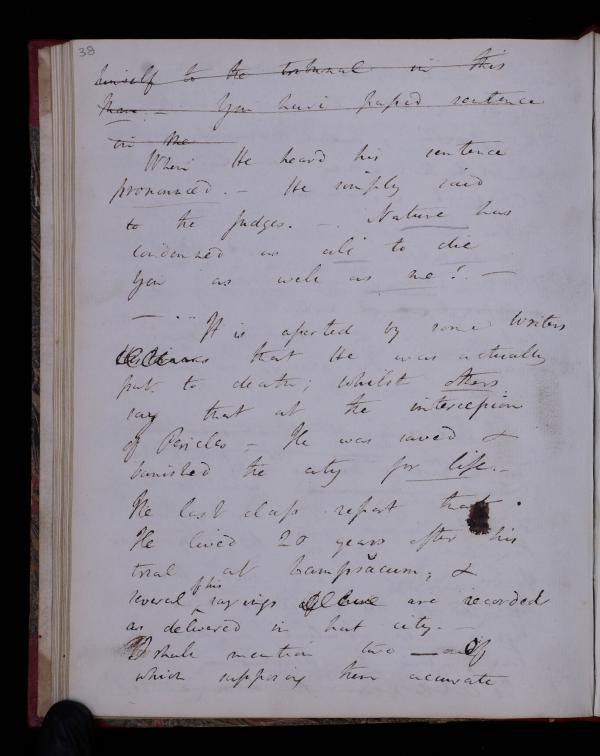 38
himself to the tribunal in this
You have passed sentence
in me
When He heard his sentence
pronounced. — He simply said
to the Judges. — Nature has
condemned us all to die
you as well as me! —
— It is asserted by some writers
that He was actually
put to death; whilst others
say that at the intercepion
of Pericles — He was saved &
banished the city for life. —
The last class report that
He lived 20 years after his
trial at Lampsăcum; &
several of his sayings are recorded
as delivered in that city. —
I shall mention two — of
which supposing them accurate